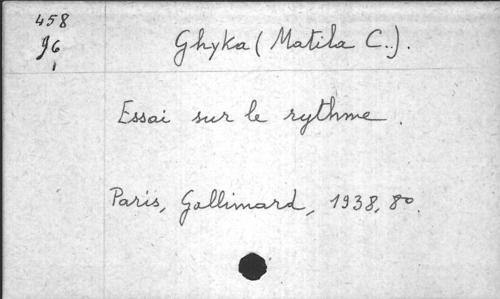 458
Ghyka (Matila C..).
Essai sur le rythme.
Paris, Gallimard, 1938, 8º.